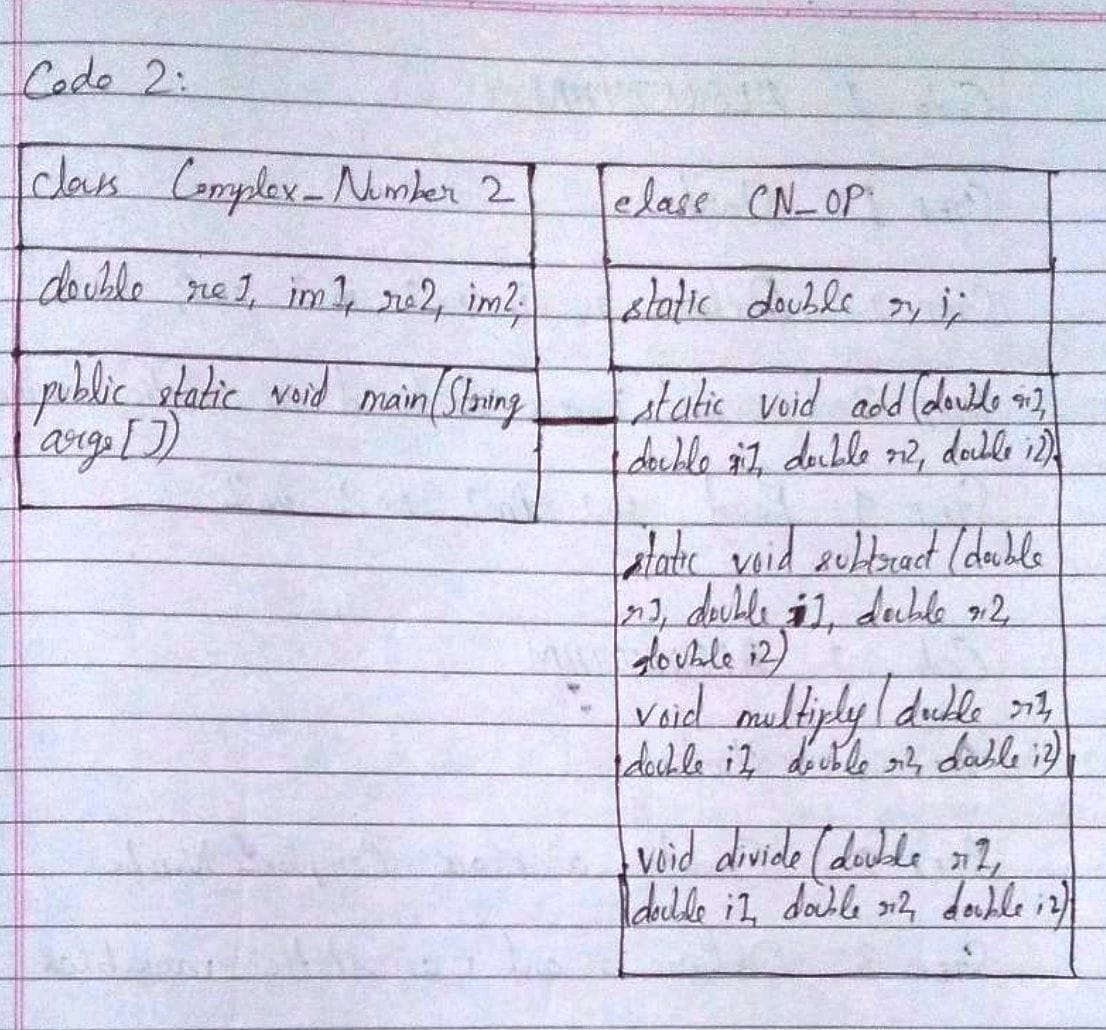 Code 2:
class Complex_Number 2
double re1, im1, re2, im2;
public static void main(String
args[])
class CN_OP
static double r, i;
static void add(double r1,
double i1, double r2, double i2)
static void subtract (double
r1, double i1, double r2,
double i2)
void multiply (double r1,
double i1, double r2, double i2)
void divide (double r1,
double i1, double r2, double i2)